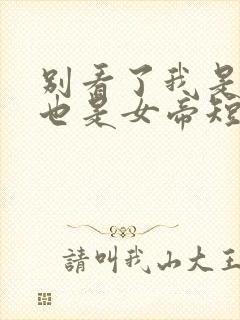 别看了我是
也是女帝短
請叫我山大王